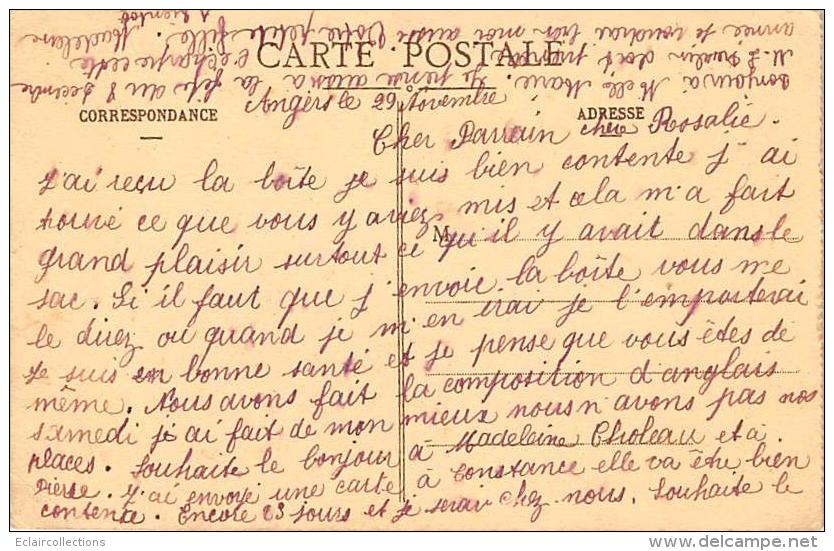 CARTE POSTALE
CORRESPONDANCE
ADRESSE
M
Angers le 29 Novembre
Cher Parrain chère Rosalie.
J'ai reçu la boîte je suis bien contente j'ai
trouvé ce que vous y aviez mis et cela m'a fait
grand plaisir surtout ce qu'il y avait dans le
sac. Si il faut que j'envoie la boîte vous me
le direz ou quand je m'en irai je l'emporterai
Je suis en bonne santé et je pense que vous êtes de
même. Nous avons fait la composition d'anglais
samedi je ai fait de mon mieux nous n'avons pas nos
places. Souhaite le bonjour à Madeleine Choleau et à
Pierse. J'ai envoyé une carte à Constance elle va être bien
contente. Encore 23 jours et je serai chez nous. Souhaite le
bonjour à Melle Marie. Je pense aussi à la fête du 8 décembre
M. L. doit prendre l'écharpe cette
année je voudrai bien moi aussi Votre petite fille.
Madeleine
à bientôt
Eclaircollections
www.delcampe.net